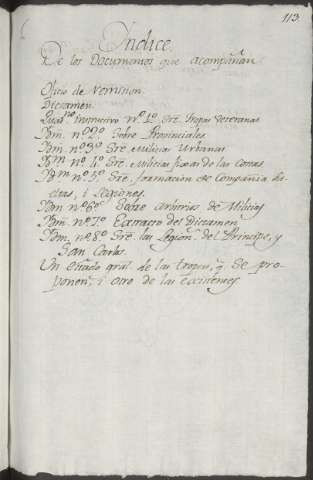 113.
Yndice.
De los Documentos que acompañan
Oficio de remision.
Dictamen.
Quad.no instructivo nº 1º Sre. tropas veteranas
Ydm. nº 2º Sobre Provinciales
Ydm. nº 3º Sre. Milicias Urbanas
Ydm. nº 4º Sre. Milicias fixas de las Costas
Ydm. nº 5º Sre. formacion de Compañia
y Legiones.
Ydm. nº 6º Sobre arbitrios de Milicias
Ydm. nº 7º Extracto del Dictamen
Ydm. nº 8º Sre. las Legion.s del Principe, y
San Carlos.
Un estado gral. de las tropas, q. se pro-
ponen, i otro de las existentes